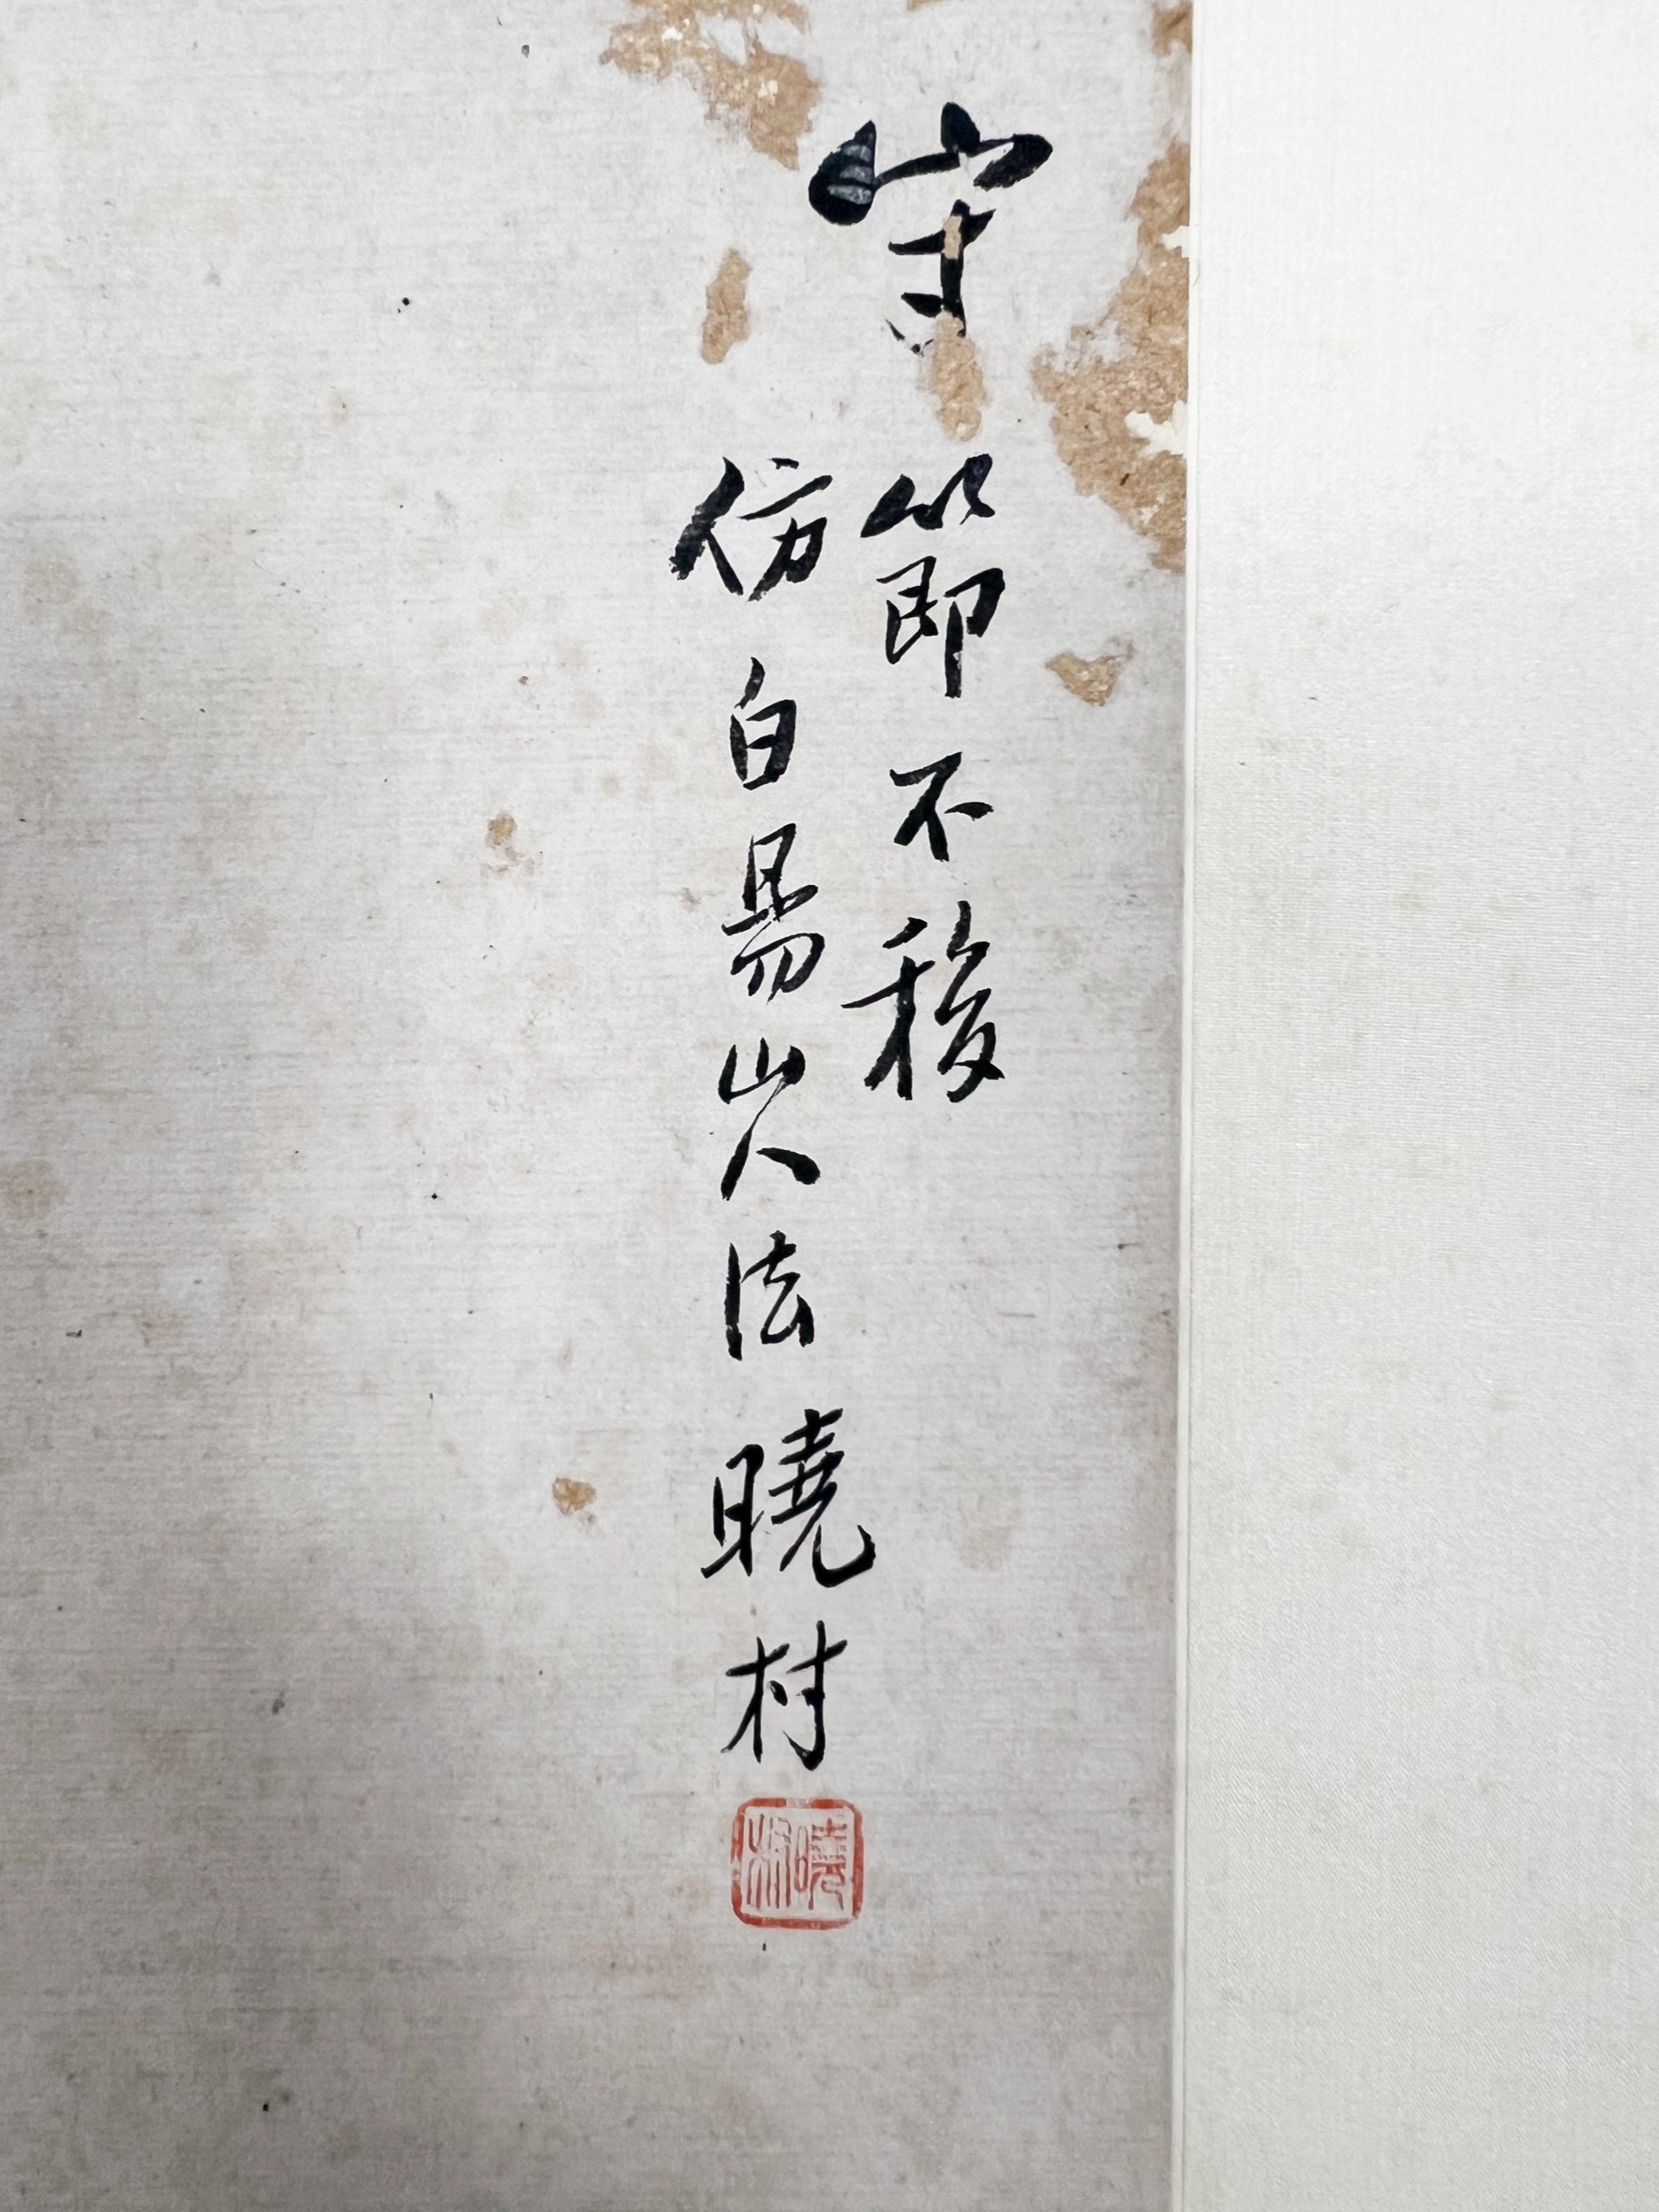 守節不移
仿白昜山人法 曉村
曉村